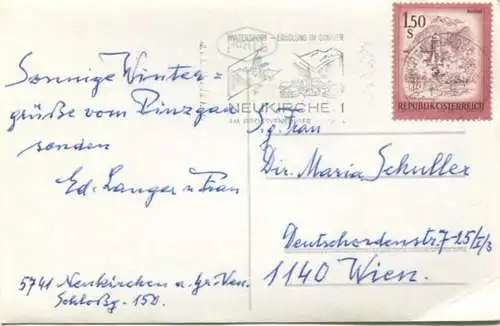 Sonnige Winter=
grüße vom Pinzgau
senden
Ed. Langer u. Frau
5741 Neukirchen a. Gr. Ven.
Schloßg. 150.
ERHOLUNG IM SOMMER
NEUKIRCHEN
1.50
S
REPUBLIK ÖSTERREICH
S.g. Frau
Dir. Maria Schuller
Deutschordenstr. 7-25/I/3
1140 Wien.